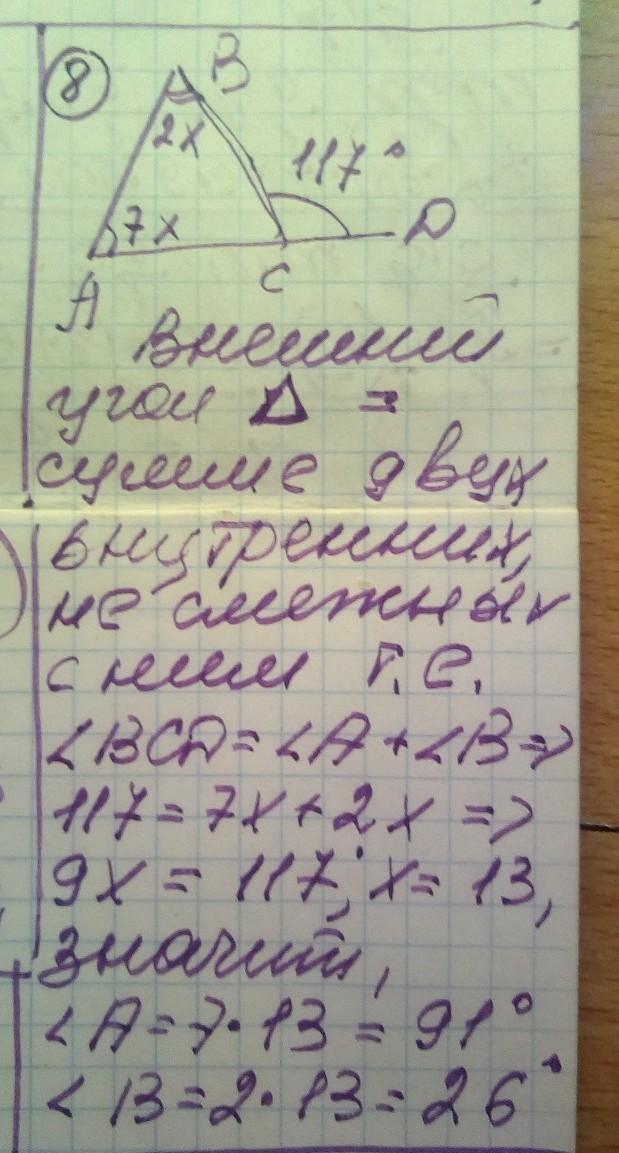 8
B
2x
117°
7x
D
A
C
Внешний
угол Δ =
сумме двух
внутренних,
не смежных
с ним т.е.
∠BCD = ∠A + ∠B =>
117 = 7x + 2x =>
9x = 117; x = 13,
значит,
∠A = 7 · 13 = 91°
∠B = 2 · 13 = 26°